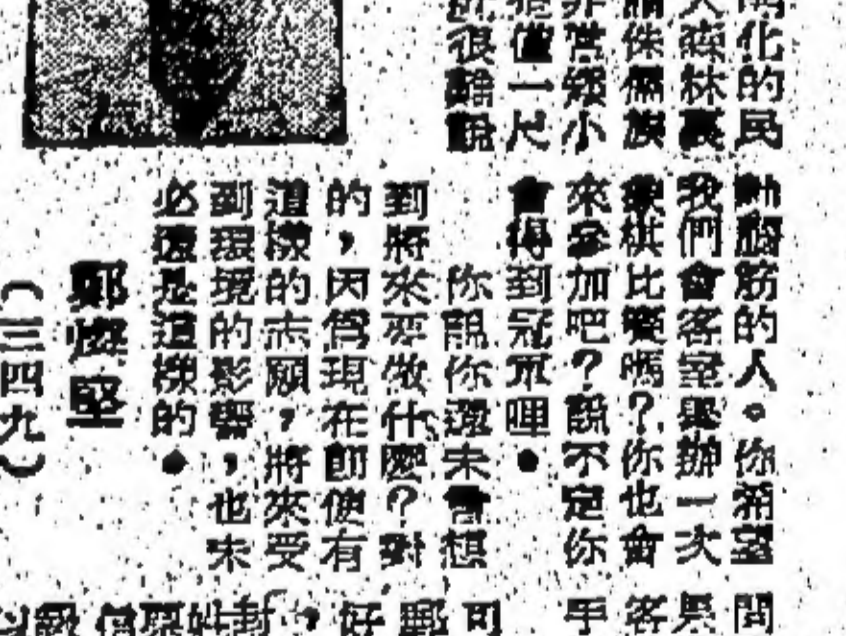 化的民
林裏
侏儒族
非常矮小
僅一尺
很難說
動腦筋的人。你希望
我們會客室舉辦一次
象棋比賽嗎?你也會
來參加吧?說不定你
會得到冠軍哩●
你說你還未曾想
到將來要做什麼?對
的,因爲現在即使有
這樣的志願,將來受
到環境的影響,也未
必還是這樣的●
鄭燦堅
(三四九)
問
客
手
可
好
,
封